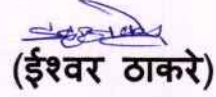 (ईश्वर ठाकरे)